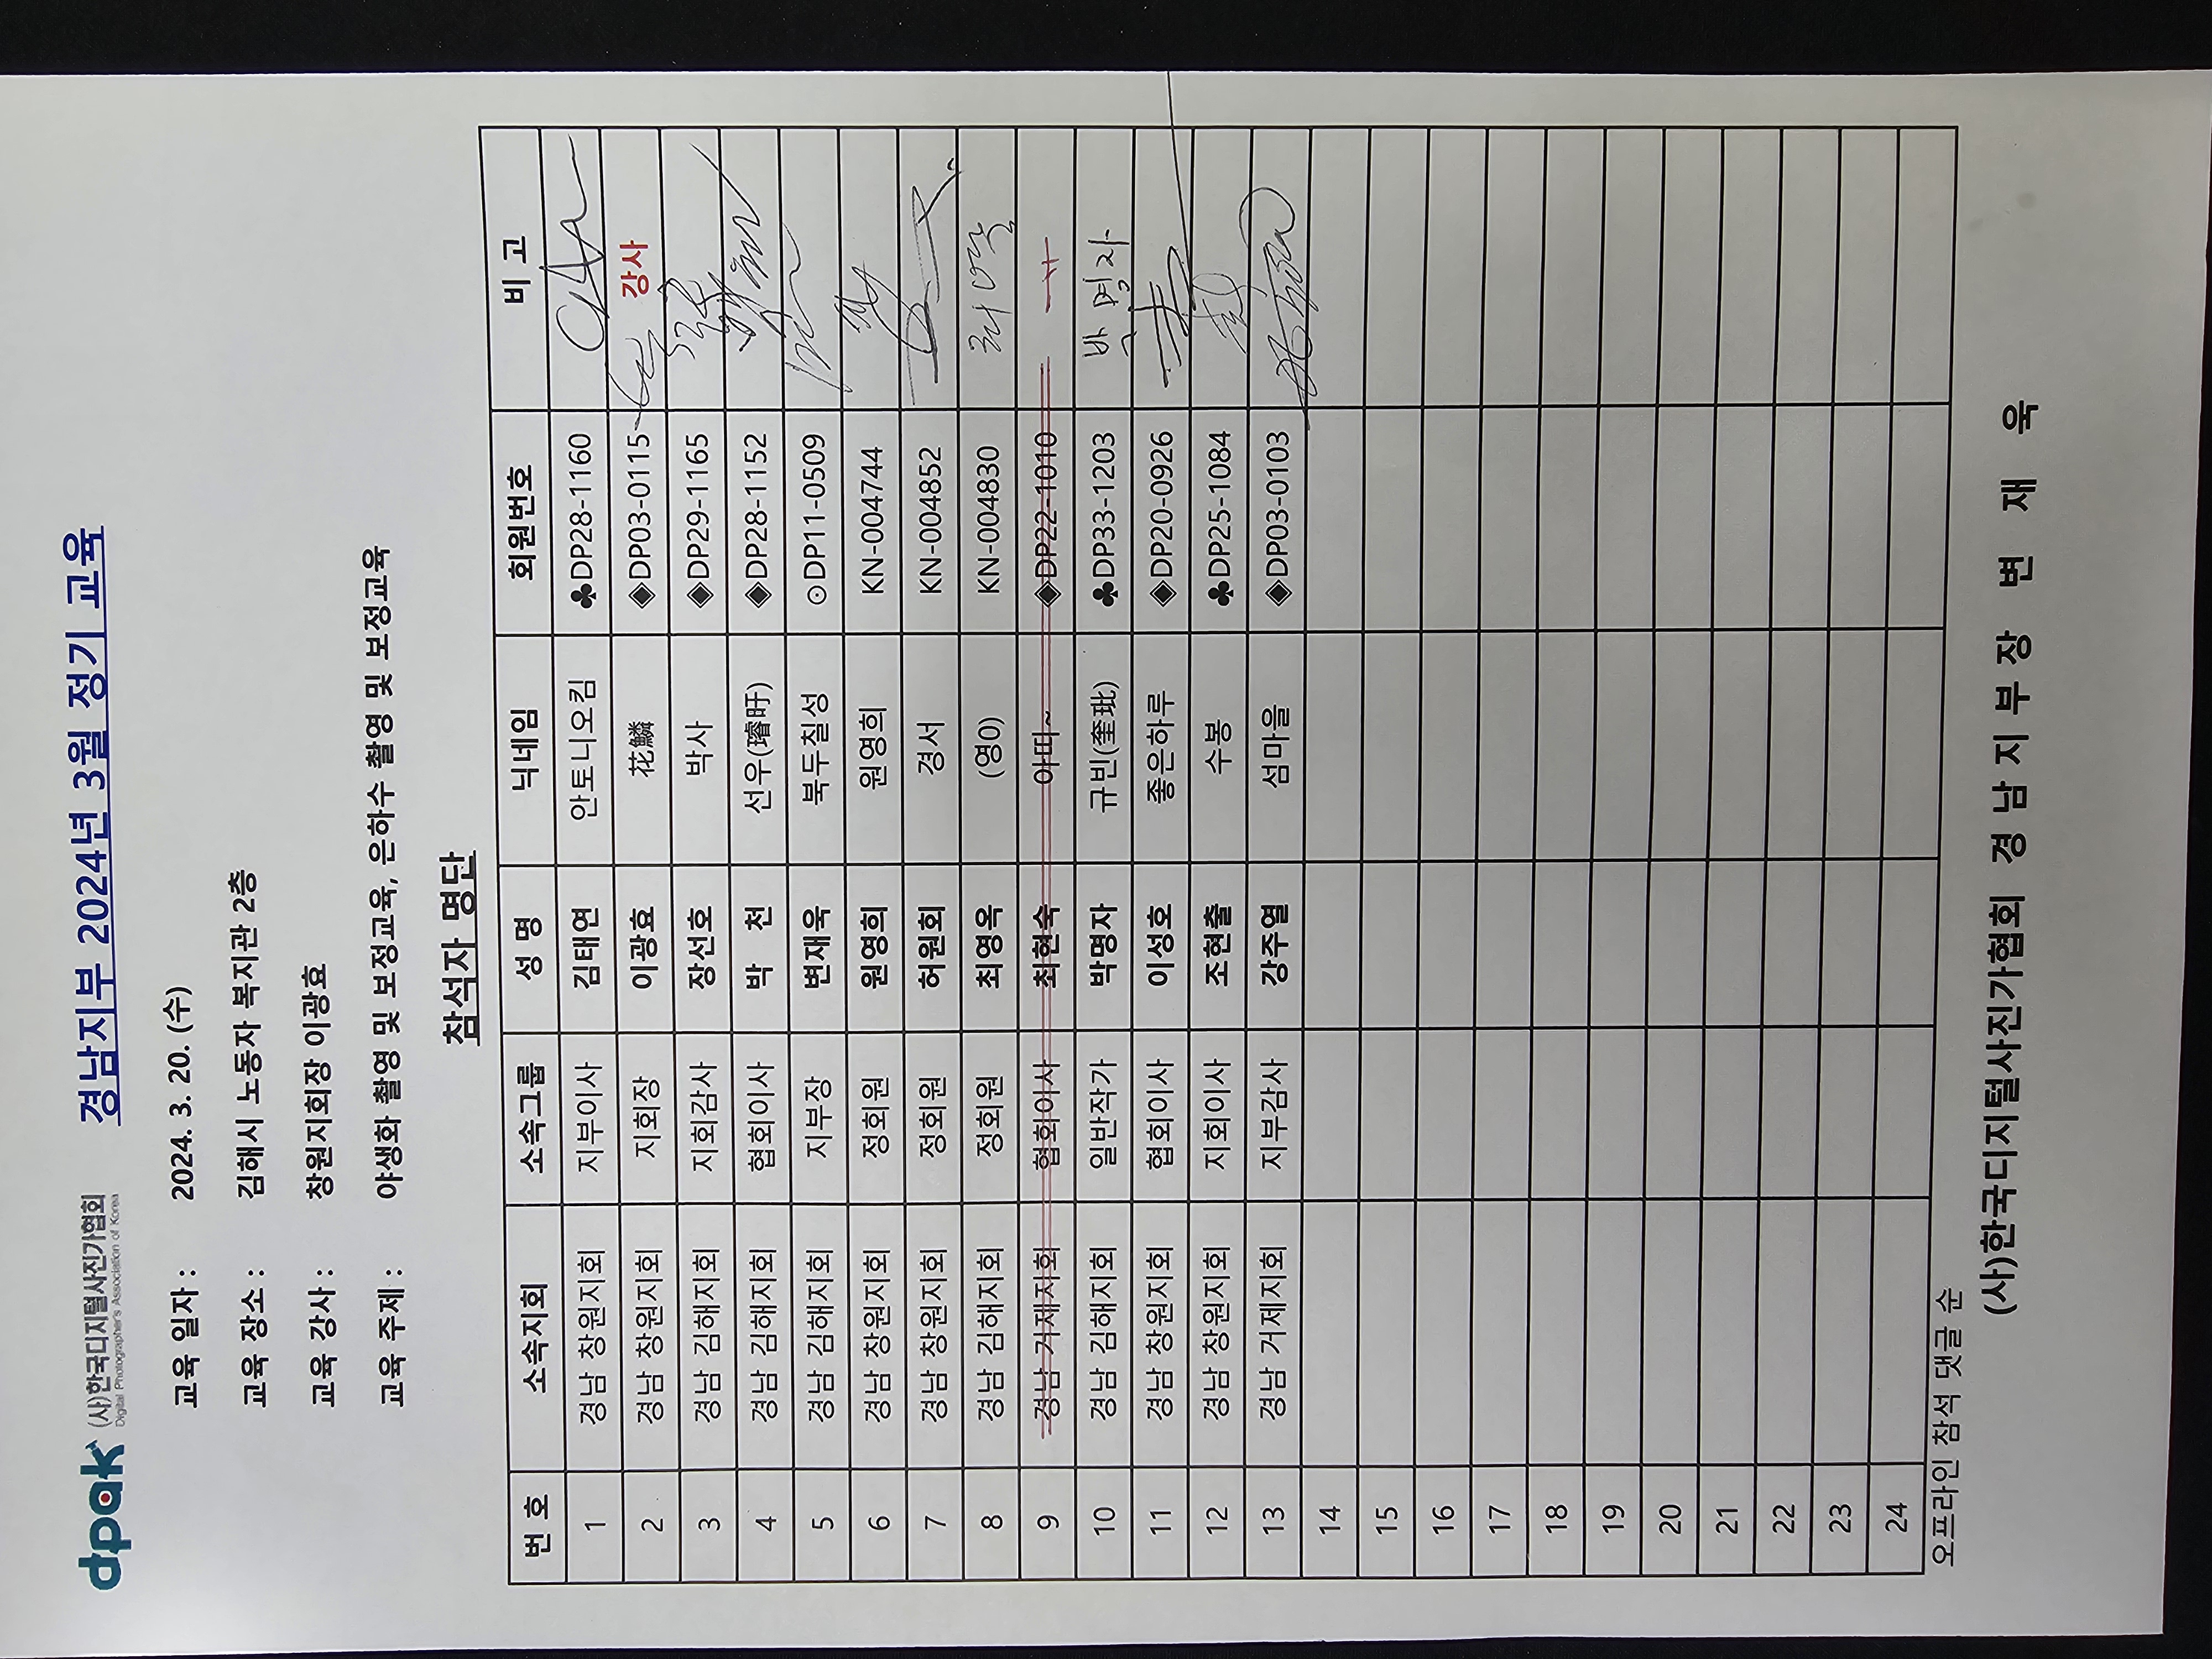 dpak (사)한국디지털사진가협회
Digital Photographer's Association of Korea
경남지부 2024년 3월 정기 교육
교육 일자 : 2024. 3. 20. (수)
교육 장소 : 김해시 노동자 복지관 2층
교육 강사 : 창원지회장 이광효
교육 주제 : 야생화 촬영 및 보정교육, 은하수 촬영 및 보정교육
참석자 명단
번 호 소속지회 소속그룹 성 명 닉네임 회원번호 비 고
1 경남 창원지회 지부이사 김태연 안토니오킴 ♣DP28-1160
2 경남 창원지회 지회장 이광효 花鱗 ◈DP03-0115 강사
3 경남 김해지회 지회감사 장선호 박사 ◈DP29-1165
4 경남 김해지회 협회이사 박 천 선우(璿旴) ◈DP28-1152
5 경남 김해지회 지부장 변재욱 북두칠성 ⊙DP11-0509
6 경남 창원지회 정회원 원영희 원영희 KN-004744
7 경남 창원지회 정회원 허원회 경서 KN-004852
8 경남 김해지회 정회원 최영옥 (영0) KN-004830
9 경남 거제지회 협회이사 최현숙 아띠~ ◈DP22-1010
10 경남 김해지회 일반작가 박명자 규빈(奎玭) ♣DP33-1203 박명자
11 경남 창원지회 협회이사 이성호 좋은하루 ◈DP20-0926
12 경남 창원지회 지회이사 조현출 수봉 ♣DP25-1084
13 경남 거제지회 지부감사 강주열 섬마을 ◈DP03-0103
14
15
16
17
18
19
20
21
22
23
24
오프라인 참석 댓글 순
(사)한국디지털사진가협회 경 남 지 부 장 변 재 욱